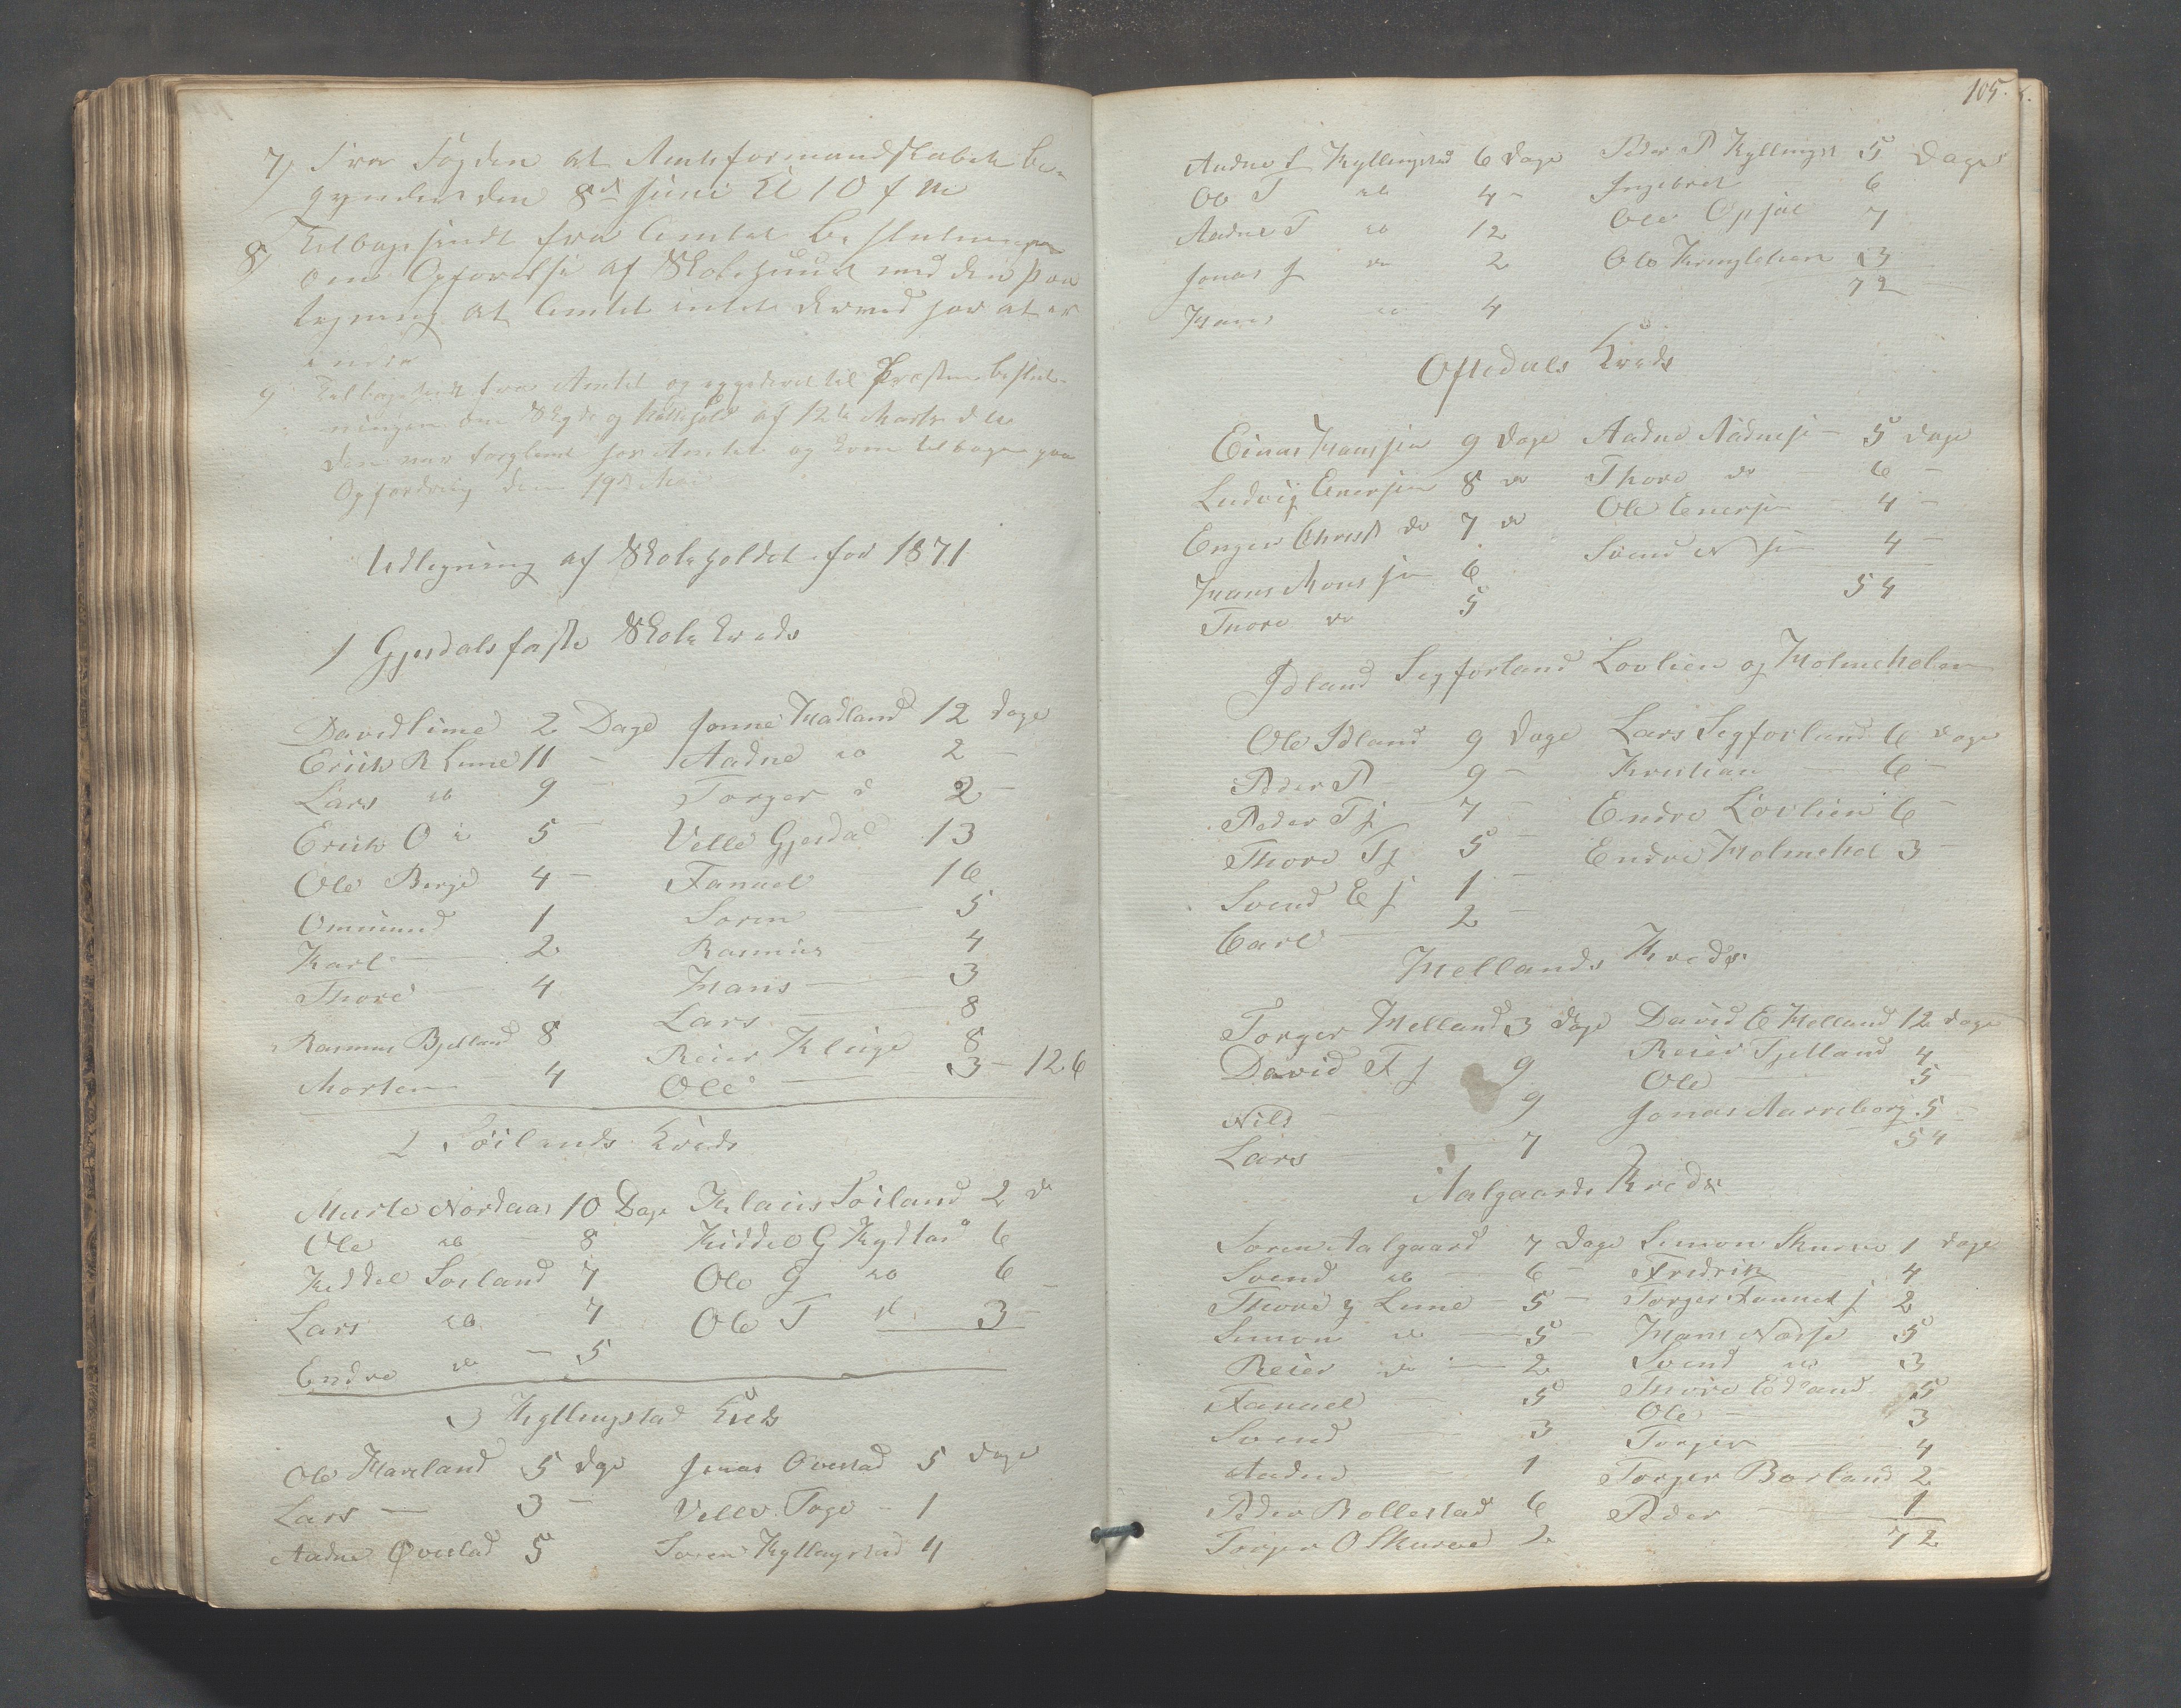 7) Fra Fogden at Amtsformandskabet be-
gynder den 8de Juni Kl 10 f M
8) Tilbagesendt fra Amtet Beslutningen
om Opførelse af Skolehuus med den Paa
tegning at Amtet intet derved har at er
indre
9 Tilbagesendt fra Amtet og til Præsten beslut-
ningen om Skyds og af 12te Marts d A
den var forglemt hos Amtet og kom tilbage paa
Opfordring den 19de Mai
Udlegning af Skoleholdet for 1871
1 Gjesdals faste Skolekreds
David Lime 2 Dage Jonne Madland 12 dage
Erich R Lime 11 - Aadne do 2 -
Lars do 9 - Torger d 2 -
Erich O do 5 - Velle Gjesdal 13
Ole Berge 4 - Fanuel 16
Ommund 1 Soren 5
Karl 2 Rasmus 4
Thore 4 Hans 3
Lars 8
Rasmus Bjelland 8 Reier Kluge 8
Morten 4 Ole 3 - 126
2 Søilands Kreds
Nordaas 10 Dage Klaus Soiland 2 d
Ole do 8 Kiddel G 6
Kiddel Soiland 7 Ole G do 6
Lars do 7 Ole T d 3 -
Endre do - 5
3 Kyllingstad Kreds
Ole Haveland 5 dge Jonas Overstad 5 dage
Lars - 3 - Velle Toge - 1
Aadne Øvestad 5 Soren Kyllingstad 4
105.
Aadne S Kyllingstad 6 dage Peder P Kyllingst 5 Dage
Ole T do 4 - Ingebret 6
Aadne T do 12 Ole Opsal 7
Jonas J do 2 Ole Kringlelien 3
Hans do 4 72
Oftedals Kreds
Einar Hanssen 9 dage Aadne Aadnesen 5 dage
Ludvig Enersen 8 do Thore do 6 -
Enger Christ do 7 do Ole Enersen 4 -
Hans Monsen 6 Svend N sen 4 -
Thore do 5 54
Idland Segforland Lovlien og Holmehelen
Ole Idland 9 dage Lars Segforland 6 dage
Peder P 9 - Kristian 6 -
Peder T J 7 - Endre Lovlien 6 -
Thore T J 5 - Endre Holmehel 3 -
Svend E J 1 -
Carl 2 -
Mellands Kreds
Torger Melland 3 dage David E Melland 12 dage
David F J 9 Reier Fjelland 4
Nils 9 Ole 5
Lars 7 Jonas 5
54
Aalgaards Kreds
Soren Aalgaard 7 Dage Simon Skurve 1 dage
Svend do 6 - Fredrik 4
Thore J Lime 5 - Torger Fanuel J 2
Simon do 5 - Hans Næse 5
Reier do 2 Svend do 3
Fanuel 5 Thore Edland 5
Svend 3 Ole 3
Aadne 1 Torger 4
Peder Bollestad 6 Torger Borland 2
Torger O Skurve 2 Peder 1
72